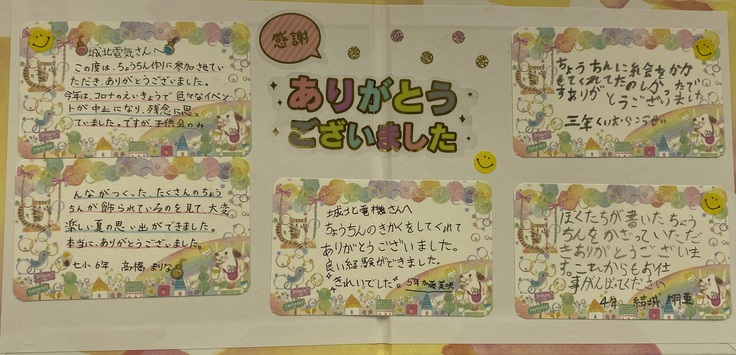 城北電気さんへ
この度は、ちょうちん作りに参加させて
いただき、ありがとうございました。
今年は、コロナのえいきょうで色々なイベン
トが中止になり、残念に思っ
ていました。ですが、子供会のみ
んながつくった、たくさんのちょう
ちんが飾られているのを見て、大変
楽しい夏の思い出ができました。
本当に、ありがとうございました。
七小6年 高橋 まりな
感謝
ありがとう
ございました
城北電機さんへ
ちょうちんのきかくをしてくれて
ありがとうございました。
良い経験ができました。
きれいでした。
5年
ちょうちんに絵をかか
せてくれてたのしかったで
すありがとうございました
三年
ぼくたちが書いたちょう
ちんをかざっていただ
きありがとうございま
す。これからもお仕
事がんばってください
4年 結城